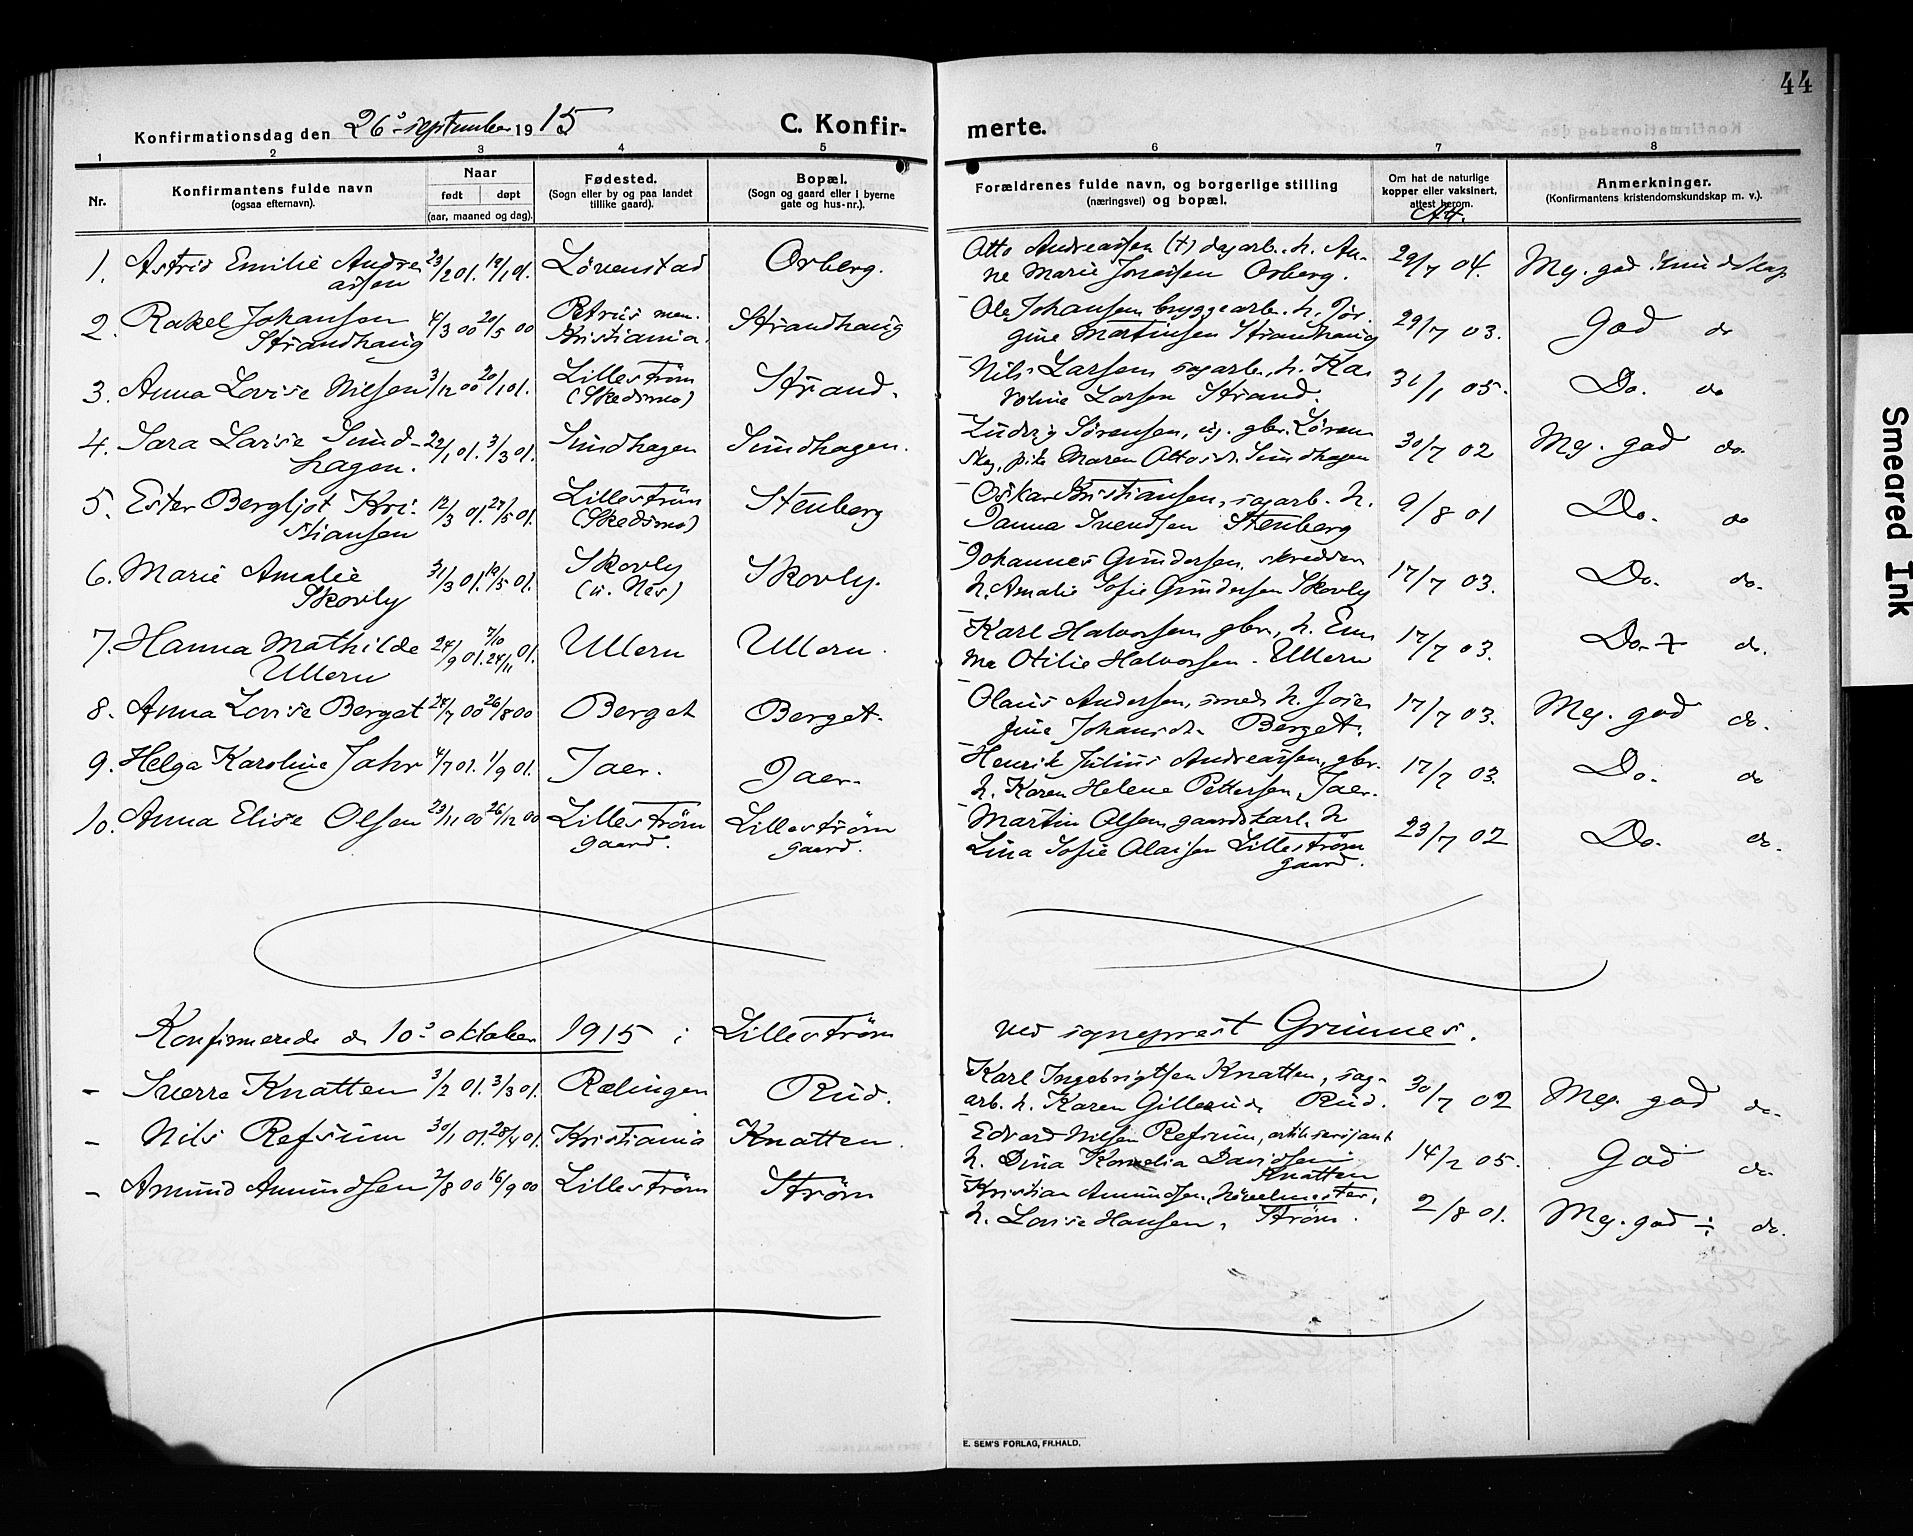 44
Konfirmationsdag den 26de september 1915
C. Konfir-
merte.
1 2 3 4 5 6 7 8
Nr.
Konfirmantens fulde navn
(ogsaa efternavn).
Naar
født døpt
(aar, maaned og dag).
Fødested.
(Sogn eller by og paa landet
tillike gaard).
Bopæl.
(Sogn og gaard eller i byerne
gate og hus-nr.).
Forældrenes fulde navn, og borgerlige stilling
(næringsvei) og bopæl.
Om hat de naturlige
kopper eller vaksinert,
attest herom.
Att.
Anmerkninger.
(Konfirmantens kristendomskundskap m. v.).
1. Astrid Emilie Andre 23/2 01. 19/1 01. Lørenstad Orberg. Otto Andreassen (+) dagarb. h. An- 29/7 04. Meg. god kundskap
assen ne Marie Jonassen Orberg.
2. Rakel Johansen 4/3 00 20/5 00 Petrus men. Strandhaug Ole Johansen bryggearb. h. Jør- 29/7 03. God do
Strandhaug Kristiania. gine Martinsen Strandhaug
3. Anna Lovise Nilsen 3/12 00 20/1 01. Lillestrøm Strand. Nils Larsen sagarb. h. Ka- 31/1 05. Do. do
(Skedsmo) roline Larsen Strand.
4. Sara Lovise Sund- 22/1 01. 3/3 01. Sundhagen Sundhagen. Ludvig Sørensen, ug. gbr. Løren- 30/7 02 Meg. god do.
hagen. skog, pike Maren Ottosd. Sundhagen
5. Ester Bergljot Kri- 12/3 01. 27/5 01. Lillestrøm Stenberg Oskar Kristiansen, sagarb. h. 9/8 01 Do. do
stiansen (Skedsmo) Janna Svendsen Stenberg
6. Marie Amalie 31/3 01. 19/5 01. Skovly Skovly. Johannes Gundersen, skredder 17/7 03. Do. do.
Skovly (ü. Nes) h. Amalie Sofie Gundersen Skovly
7. Hanna Mathilde 24/9 01. 7/10 24/11 01. Ullern Ullern. Karl Halvorsen gbr., h. Em- 17/7 03. Do. + do.
Ullern ma Otilie Halvorsen. Ullern
8. Anna Lovise Berget 28/7 00 26/8 00 Berget Berget. Olaus Andersen, smed h. Jose- 17/7 03. Meg. god do.
fine Johansd. Berget.
9. Helga Karoline Jahr 4/7 01. 1/9 01. Jaer. Jaer. Henrik Julius Andreassen, gbr. 17/7 03. Do. do
h. Karen Helene Pettersen, Jaer.
10. Anna Elise Olsen 23/11 00 26/12 00 Lillestrøm Lillestrøm Martin Olsen gaardskarl. h 23/7 02 Do. do.
gaard. gaard. Lina Sofie Olaisen Lillestrøm
gaard.
Konfirmerede d 10de oktober 1915 i Lillestrøm ved sogneprest Grunnes.
- Sverre Knatten 3/2 01. 3/3 01. Rælingen Rud. Karl Ingebrigtsen Knatten, sag- 30/7 02 Meg. god do.
arb. h. Karen Gillerud. Rud.
- Nils Refsum 30/1 01. 28/4 01. Kristiania Knatten. Edvard Nilsen Refsum, artilserijant 14/2 05. God do
h. Dina Kornelia Davidsen
Knatten
- Amund Amundsen 2/8 00 16/9 00 Lillestrøm Strøm Kristian Amundsen, høvelmester, 2/8 01. Meg. god ÷ do.
h. Lovise Hansen, Strøm.
E. SEM'S FORLAG, FR.HALD.
Smeared Ink